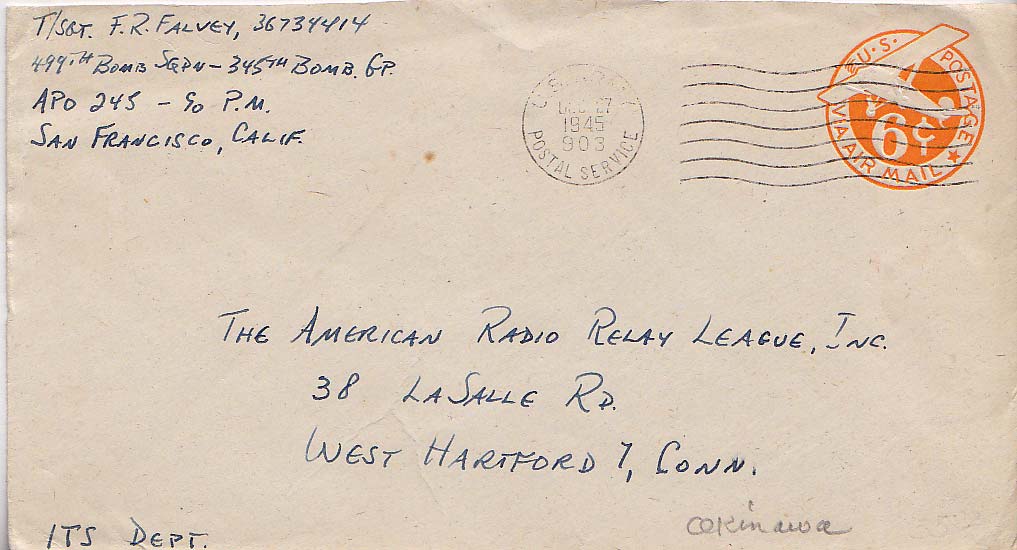 T/SGT. F.R. FALVEY, 36734414
499TH BOMB SQDN - 345TH BOMB. GP.
APO 245 - c/o P.M.
SAN FRANCISCO, CALIF.
U.S. ARMY
DEC 27
1945
903
POSTAL SERVICE
U.S. POSTAGE
6¢
VIA AIR MAIL
THE AMERICAN RADIO RELAY LEAGUE, INC.
38 LASALLE RD.
WEST HARTFORD 7, CONN.
ITS DEPT.
Okinawa